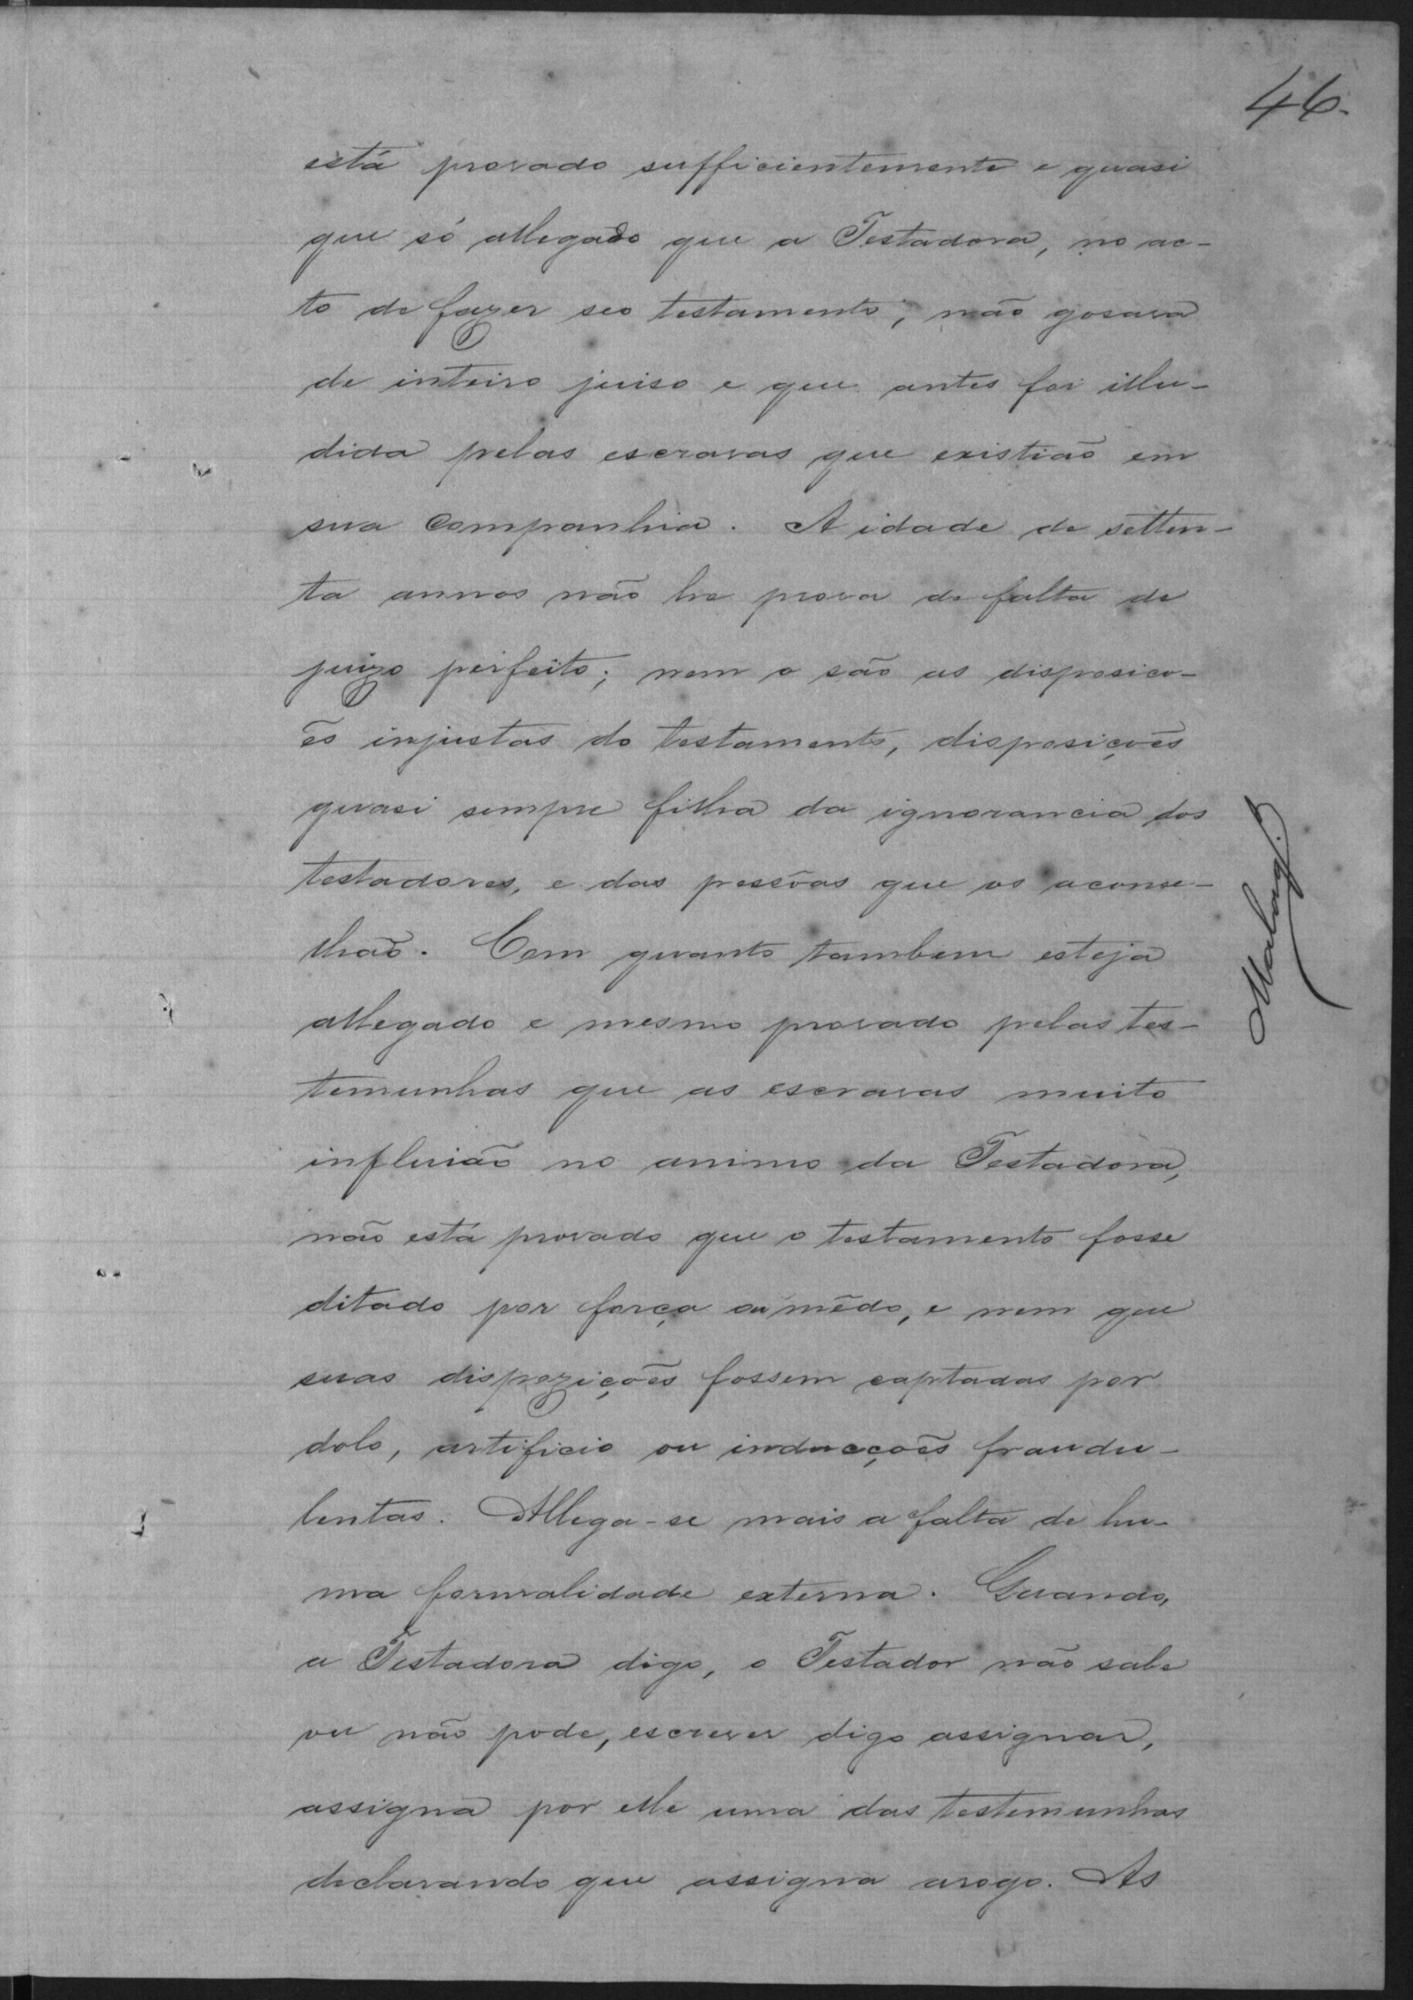 46.
está provado sufficientemente e quasi
que só allegado que a Testadora, no ac-
to de fazer seo testamento, não gosava
de inteiro juiso e que antes foi illu-
dida pelas escravas que existião em
sua companhia. A idade de setten-
ta annos não he prova de falta de
juizo perfeito; nem o são as disposico-
ẽs injustas do testamento, disposições
quasi sempre filha da ignorancia dos
testadores, e das pessôas que os aconse-
lhão. Com quanto tambem esteja
allegado e mesmo provado pelas tes-
temunhas que as escravas muito
influião no animo da Testadora,
não está provado que o testamento fosse
ditado por força ou mêdo, e nem que
suas dispozições fossem captadas por
dolo, artificio ou inducções fraudu-
lentas. Allega-se mais a falta de hu-
ma formalidade externa. Quando,
a Testadora digo, o Testador não sabe
ou não pode, escrever digo assignar,
assigna por elle uma das testemunhas
declarando que assigna arogo. As